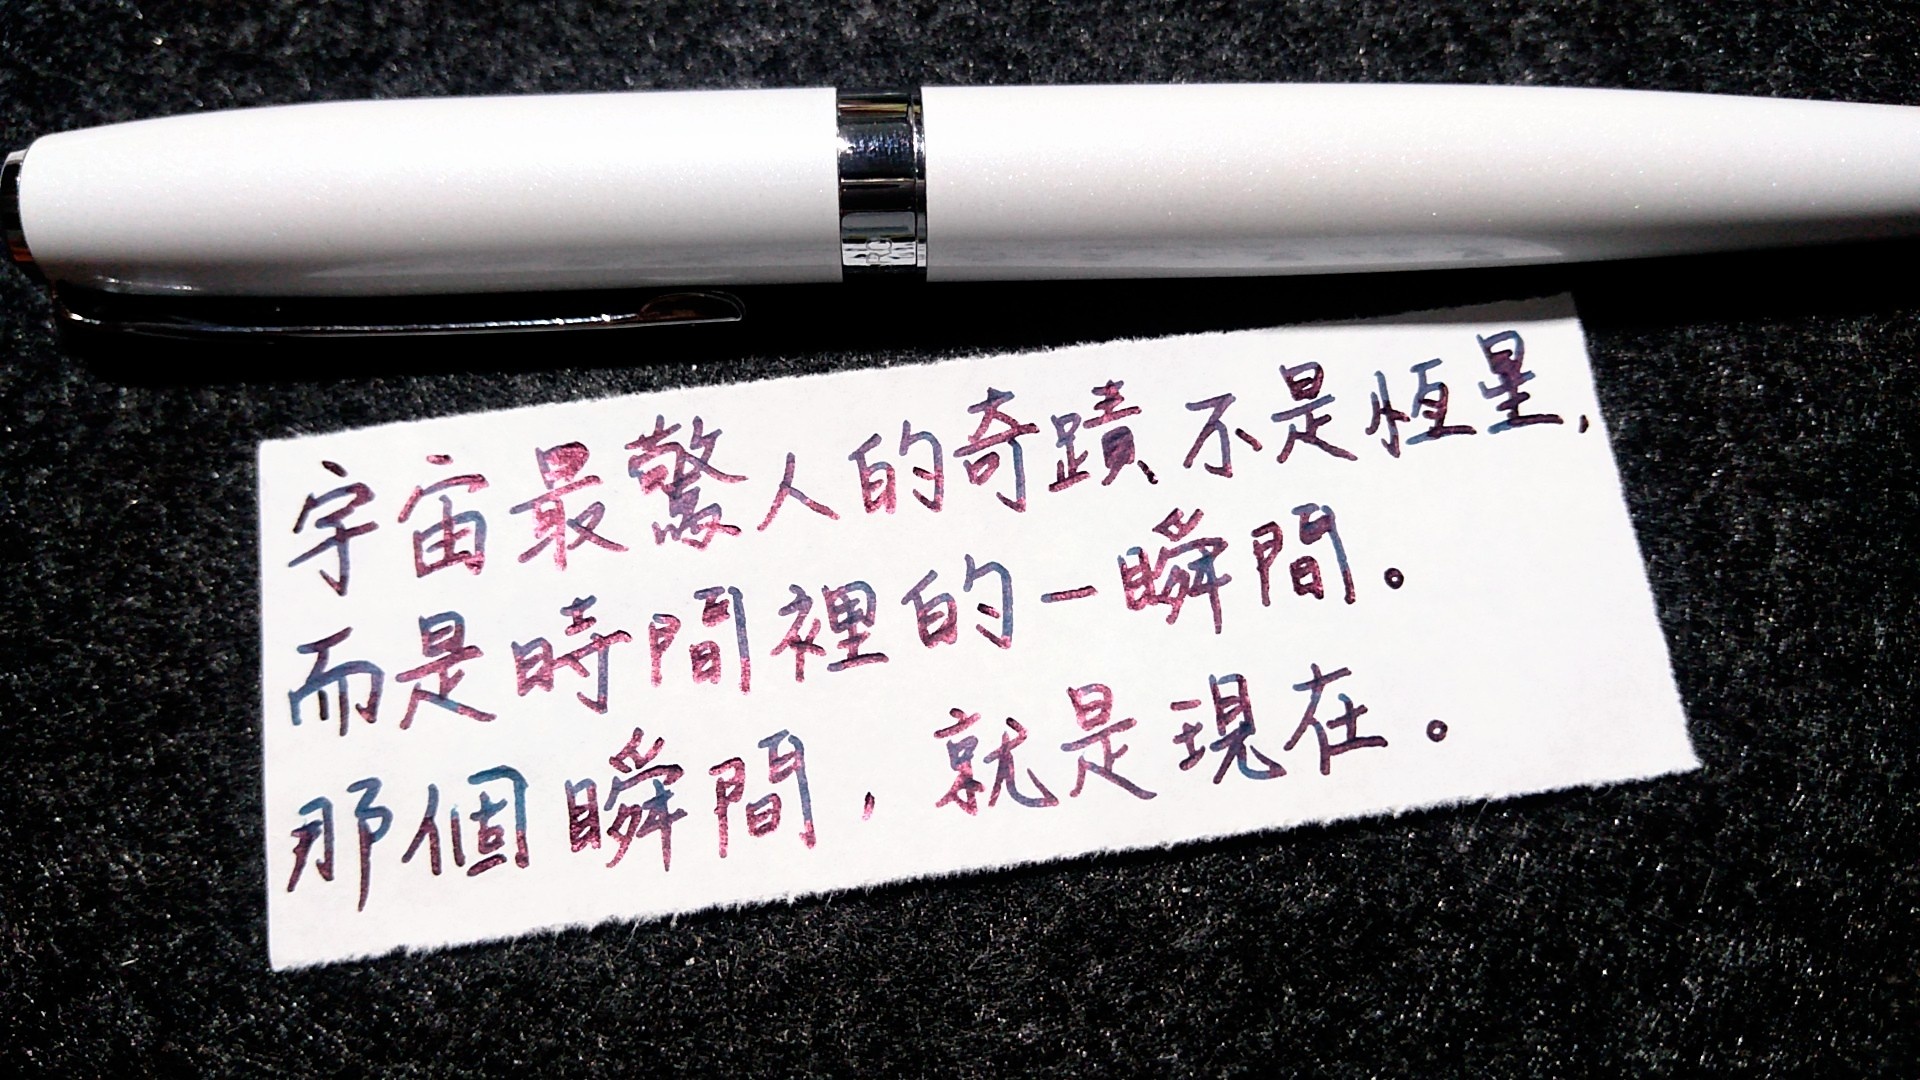 宇宙最驚人的奇蹟不是恆星,
而是時間裡的一瞬間。
那個瞬間,就是現在。